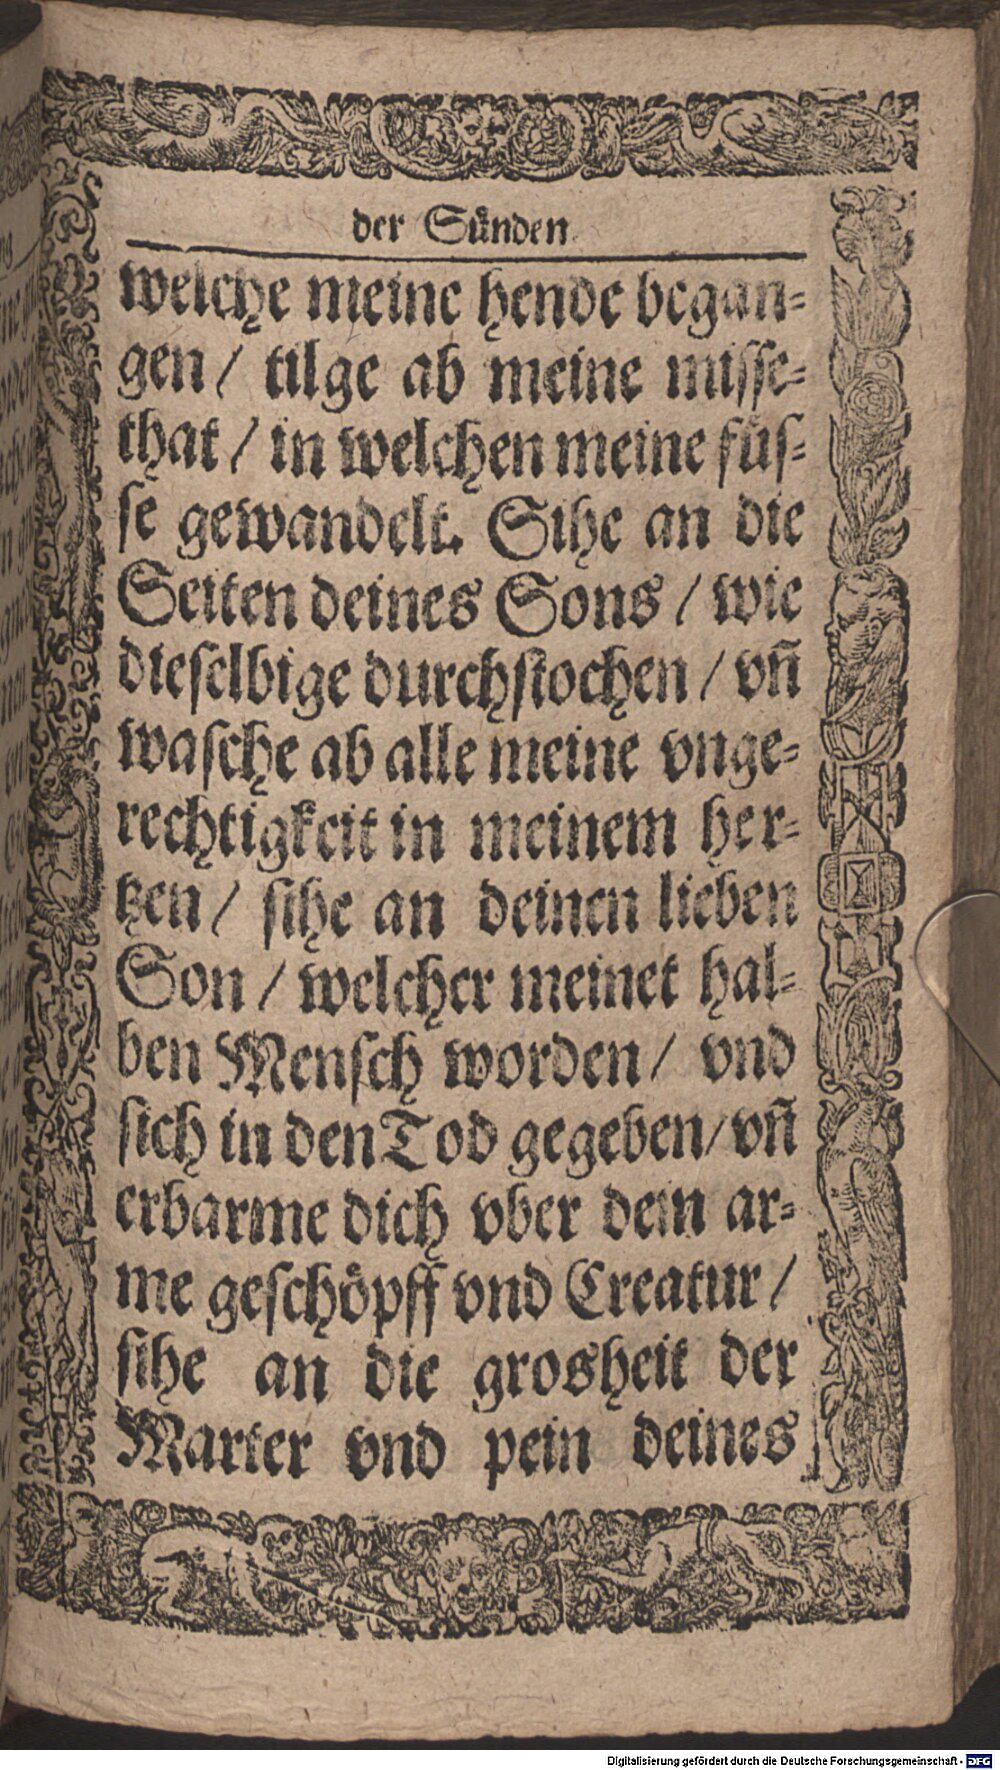 der Sünden
welche meine hende began-
gen / tilge ab meine misse-
that / in welchen meine füs-
se gewandelt. Sihe an die
Seiten deines Sons / wie
dieselbige durchstochen / vñ
wasche ab alle meine vnge-
rechtigkeit in meinem her-
tzen / sihe an deinen lieben
Son / welcher meinet hal-
ben Mensch worden / vnd
sich in den Tod gegeben / vñ
erbarme dich vber dem ar-
me geschöpff vnd Creatur /
sihe an die grosheit der
Marter vnd pein deines
Digitalisierung gefördert durch die Deutsche Forschungsgemeinschaft - DFG